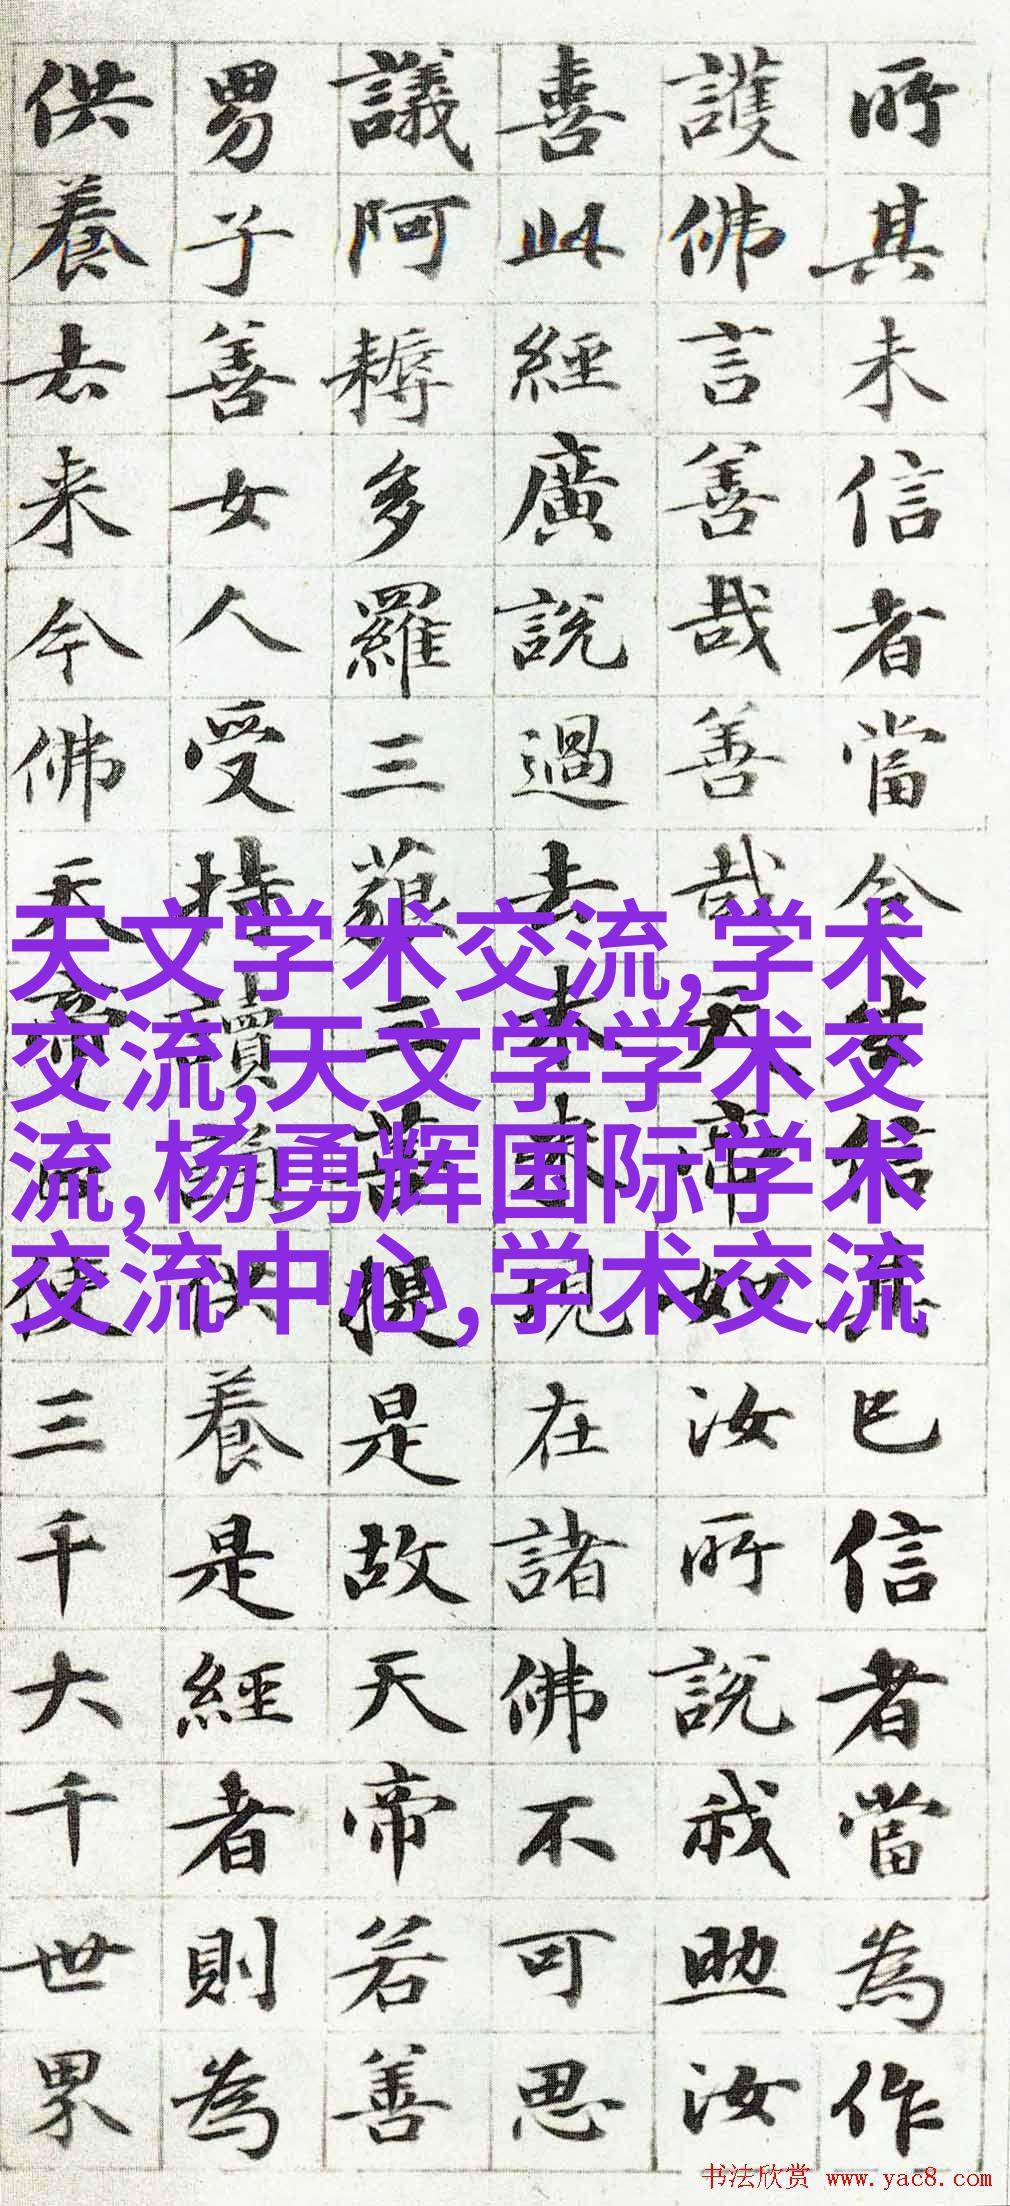 所其未信者當令生信已信者當為作
護佛言善哉善哉天帝如汝所說我助汝
喜此經廣說過去未来現在諸佛不可思
議阿耨多羅三藐三菩提是故天帝若善
男子善女人受持讀誦供養是經者則為
供養去来今佛天帝使三千大千世界
天文学术交流,学术
交流,天文学学术交
流,杨勇辉国际学术
交流中心,学术交流
书法欣赏 www.yac8.com